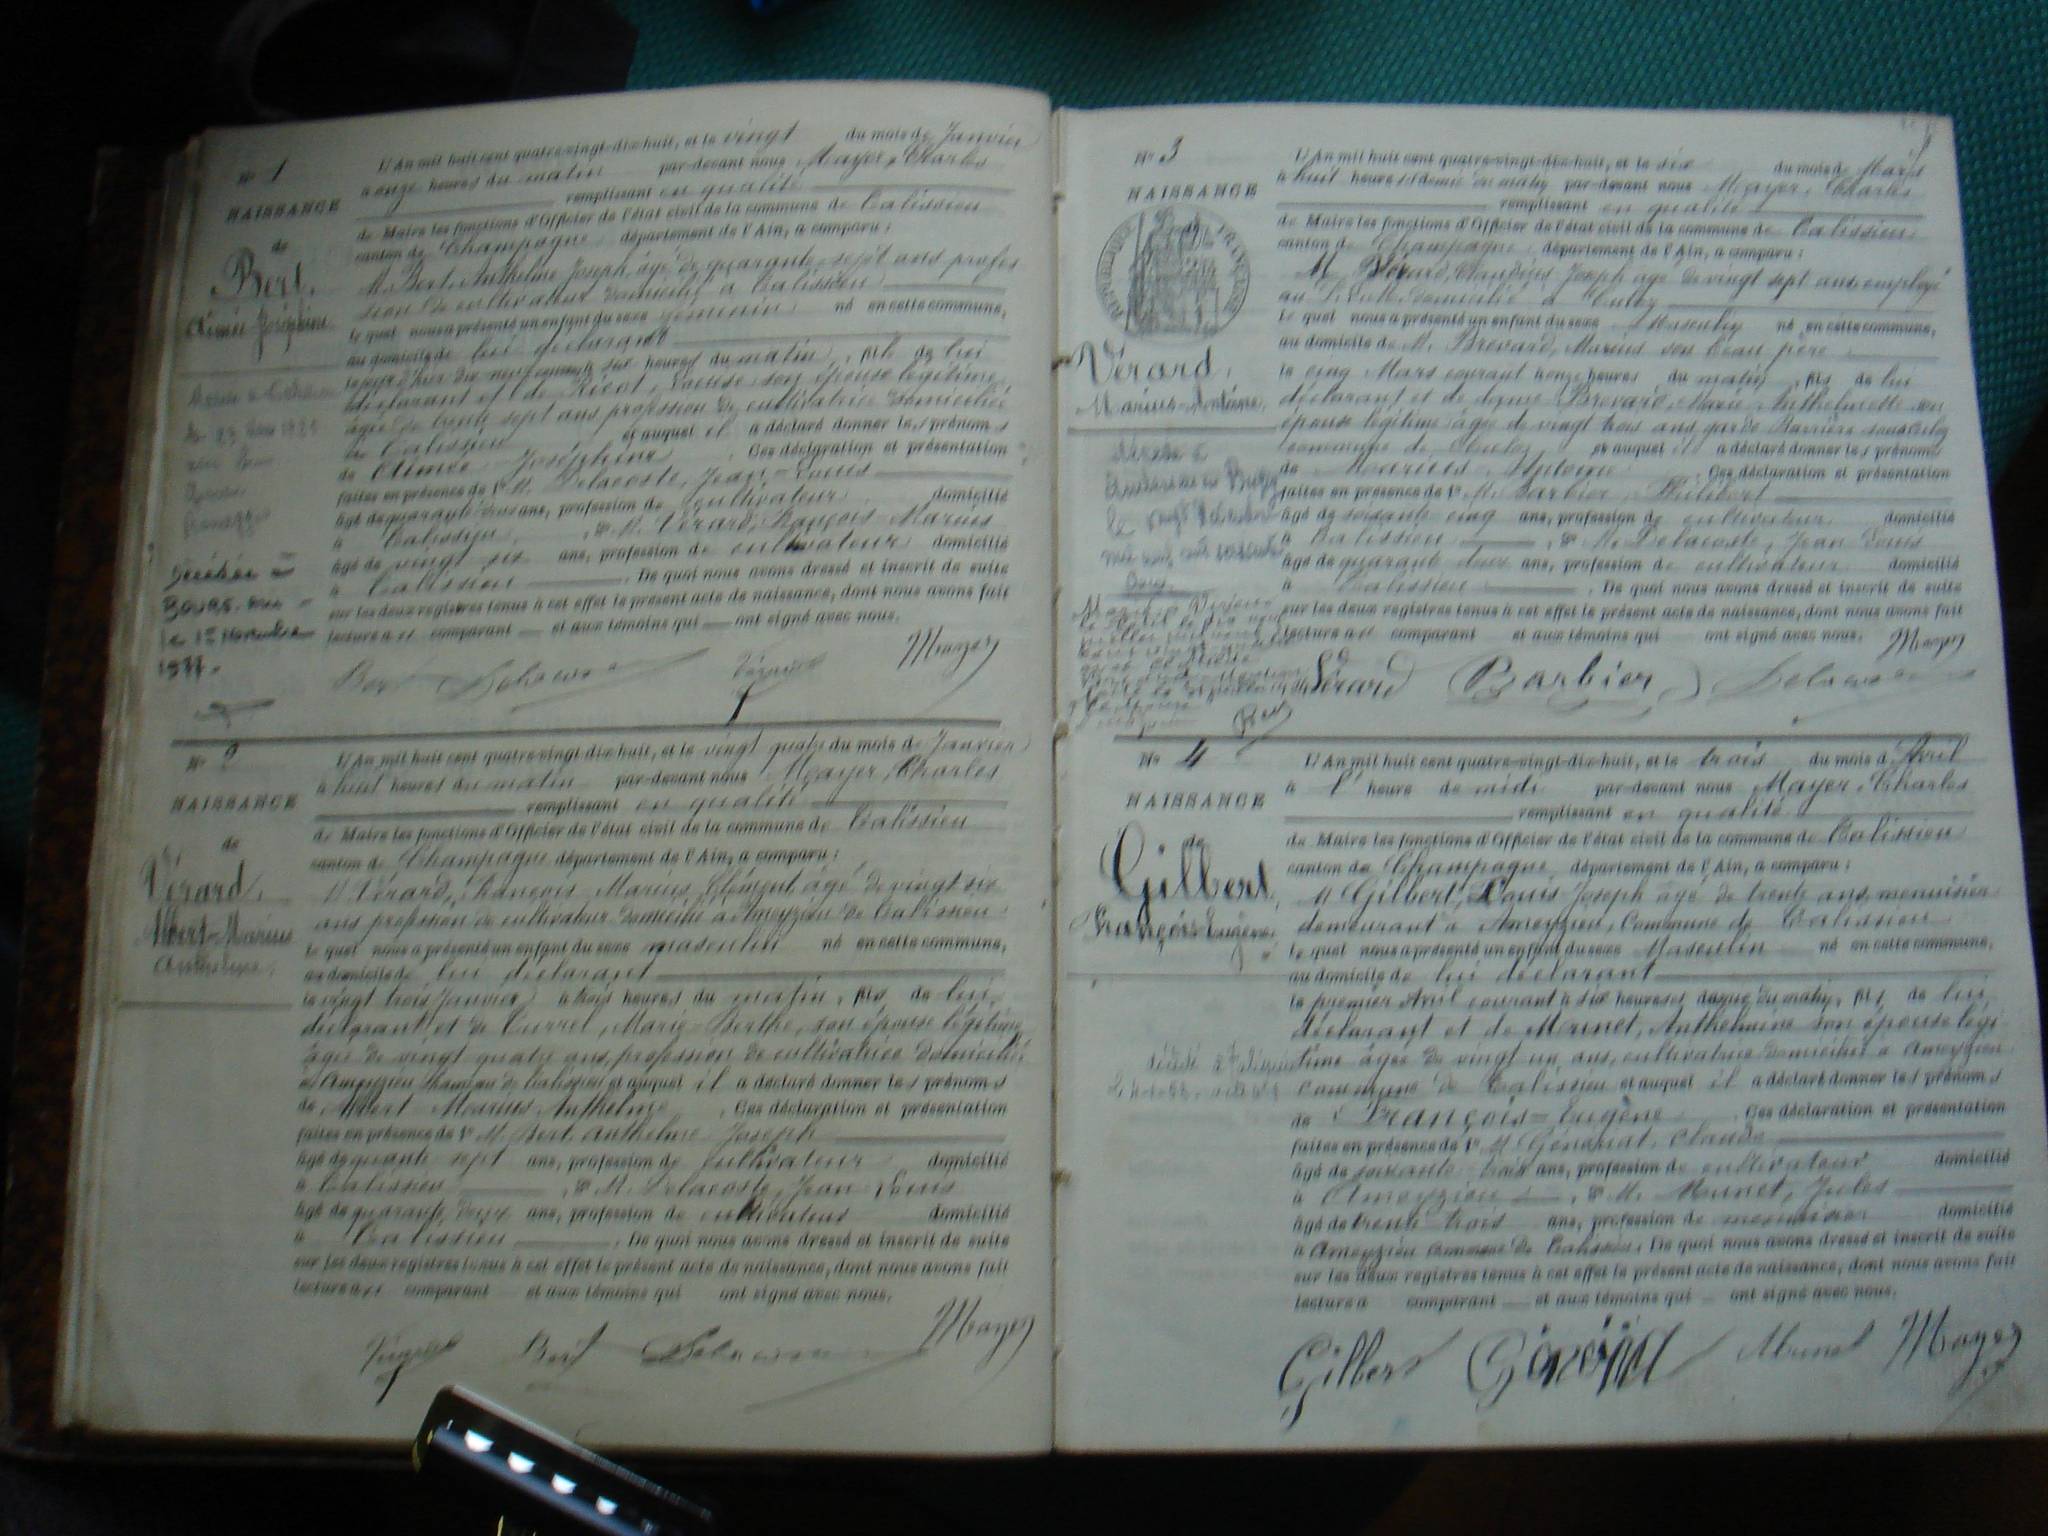 N° 1
NAISSANCE
de
Bert,
Aimée Joséphine
décédée à
Bourg
le 1er novembre
1977.
L'An mil huit cent quatre-vingt-dix-huit, et le vingt du mois de Janvier
à onze heures du matin par-devant nous Mayer, Charles
remplissant en qualité
de Maire les fonctions d'Officier de l'état civil de la commune de Talissieu
canton de Champagne département de l'Ain, a comparu :
M. Bert, Anthelme Joseph âgé de quarante-sept ans profes
sion de cultivateur domicilié à Talissieu
le quel nous a présenté un enfant du sexe féminin né en cette commune,
au domicile de lui déclarant
le jour d'hier dix neuf courant à six heures du matin, fil de lui
déclarant et de Ricot, Louise son épouse légitime
âgée de trente sept ans profession de cultivatrice domiciliée
à Talissieu et auquel il a déclaré donner les prénoms
de Aimée Joséphine. Ces déclaration et présentation
faites en présence de 1° M. Delacoste, Jean=Louis
âgé de quarante deux ans, profession de cultivateur domicilié
à Talissieu, 2° M. Vérard, François-Marius
âgé de vingt six ans, profession de cultivateur domicilié
à Talissieu. De quoi nous avons dressé et inscrit de suite
sur les deux registres tenus à cet effet le présent acte de naissance, dont nous avons fait
lecture aux comparant et aux témoins qui ont signé avec nous.
Bert Delacoste Vérard Mayer
N° 2
NAISSANCE
de
Vérard,
Albert-Marius
Anthelme.
L'An mil huit cent quatre-vingt-dix-huit, et le vingt quatre du mois de Janvier
à huit heures du matin par-devant nous Mayer, Charles
remplissant en qualité
de Maire les fonctions d'Officier de l'état civil de la commune de Talissieu
canton de Champagne département de l'Ain, a comparu :
M. Vérard, François Marius, Clément, âgé de vingt six
ans profession de cultivateur domicilié à Ameyzieu de Talissieu
le quel nous a présenté un enfant du sexe masculin né en cette commune,
au domicile de lui déclarant
le vingt trois Janvier à trois heures du matin, fils de lui
déclarant et de Curret, Marie-Berthe, son épouse légitime
âgée de vingt quatre ans, profession de cultivatrice domiciliée
à Ameyzieu hameau de Talissieu et auquel il a déclaré donner les prénoms
de Albert Marius Anthelme. Ces déclaration et présentation
faites en présence de 1° M. Bert, Anthelme Joseph
âgé de quarante sept ans, profession de cultivateur domicilié
à Talissieu, 2° M. Delacoste, Jean Louis
âgé de quarante deux ans, profession de cultivateur domicilié
à Talissieu. De quoi nous avons dressé et inscrit de suite
sur les deux registres tenus à cet effet le présent acte de naissance, dont nous avons fait
lecture aux comparant et aux témoins qui ont signé avec nous.
Vérard Bert Delacoste Mayer
N° 3
NAISSANCE
RÉPUBLIQUE FRANÇAISE
Vérard,
Marius-Antoine.
décédé à
le vingt
L'An mil huit cent quatre-vingt-dix-huit, et le six du mois de Mars
à huit heures et demie du matin par-devant nous Mayer, Charles
remplissant en qualité
de Maire les fonctions d'Officier de l'état civil de la commune de Talissieu
canton de Champagne, département de l'Ain, a comparu :
M. Vérard, Claudius Joseph âgé de vingt sept ans, employé
au P.L.M. domicilié à Culoz
le quel nous a présenté un enfant du sexe Masculin né en cette commune,
au domicile de M. Brevard, Marius son beau père
le cinq Mars courant à onze heures du matin, fils de lui
déclarant et de dame Brevard, Marie Anthelmette son
épouse légitime âgée de vingt trois ans garde Barrière
commune de Culoz et auquel il a déclaré donner les prénoms
de Marius Antoine. Ces déclaration et présentation
faites en présence de 1° M. Barbier, Philibert
âgé de soixante cinq ans, profession de cultivateur domicilié
à Talissieu, 2° M. Delacoste, Jean Louis
âgé de quarante deux ans, profession de cultivateur domicilié
à Talissieu. De quoi nous avons dressé et inscrit de suite
sur les deux registres tenus à cet effet le présent acte de naissance, dont nous avons fait
lecture aux comparant et aux témoins qui ont signé avec nous. Mayer
Vérard Barbier Delacoste
N° 4
NAISSANCE
de
Gilbert,
François Eugène
décédé
L'An mil huit cent quatre-vingt-dix-huit, et le trois du mois d'Avril
à l'heure de midi par-devant nous Mayer, Charles
remplissant en qualité
de Maire les fonctions d'Officier de l'état civil de la commune de Talissieu
canton de Champagne, département de l'Ain, a comparu :
M. Gilbert, Louis Joseph âgé de trente ans, menuisier
demeurant à Ameyzieu, Commune de Talissieu
le quel nous a présenté un enfant du sexe Masculin né en cette commune,
au domicile de lui déclarant
le premier Avril courant à six heures du matin, fils de lui
déclarant et de Munet, Anthelmine son épouse légi
time âgée de vingt un ans, cultivatrice domiciliée à Ameyzieu
commune de Talissieu et auquel il a déclaré donner les prénoms
de François=Eugène. Ces déclaration et présentation
faites en présence de 1° M. Genoud, Claude
âgé de soixante trois ans, profession de cultivateur domicilié
à Ameyzieu, 2° M. Munet, Jules
âgé de trente trois ans, profession de menuisier domicilié
à Ameyzieu commune de Talissieu. De quoi nous avons dressé et inscrit de suite
sur les deux registres tenus à cet effet le présent acte de naissance, dont nous avons fait
lecture a comparant et aux témoins qui ont signé avec nous.
Gilbert Munet Mayer